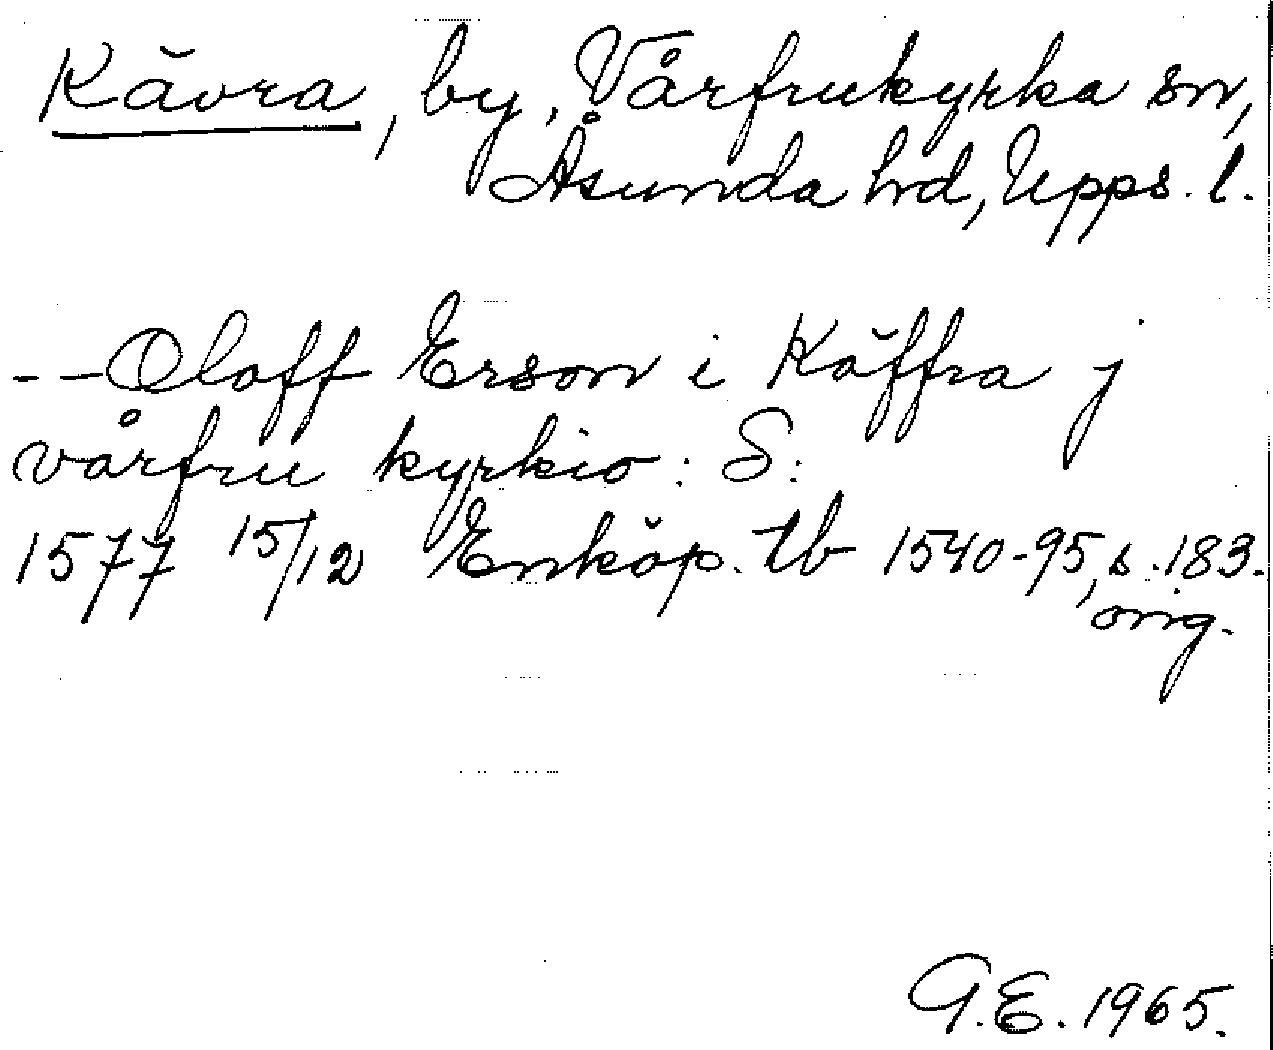 Kävra, by, Vårfrukyrka sn,
Åsunda hd, Upps. l.
-- Oloff Erson i Käffra j
vårfru kyrkio : S :
1577 15/12 Enköp. tb 1540-95, s. 183.
orig.
G.E. 1965.